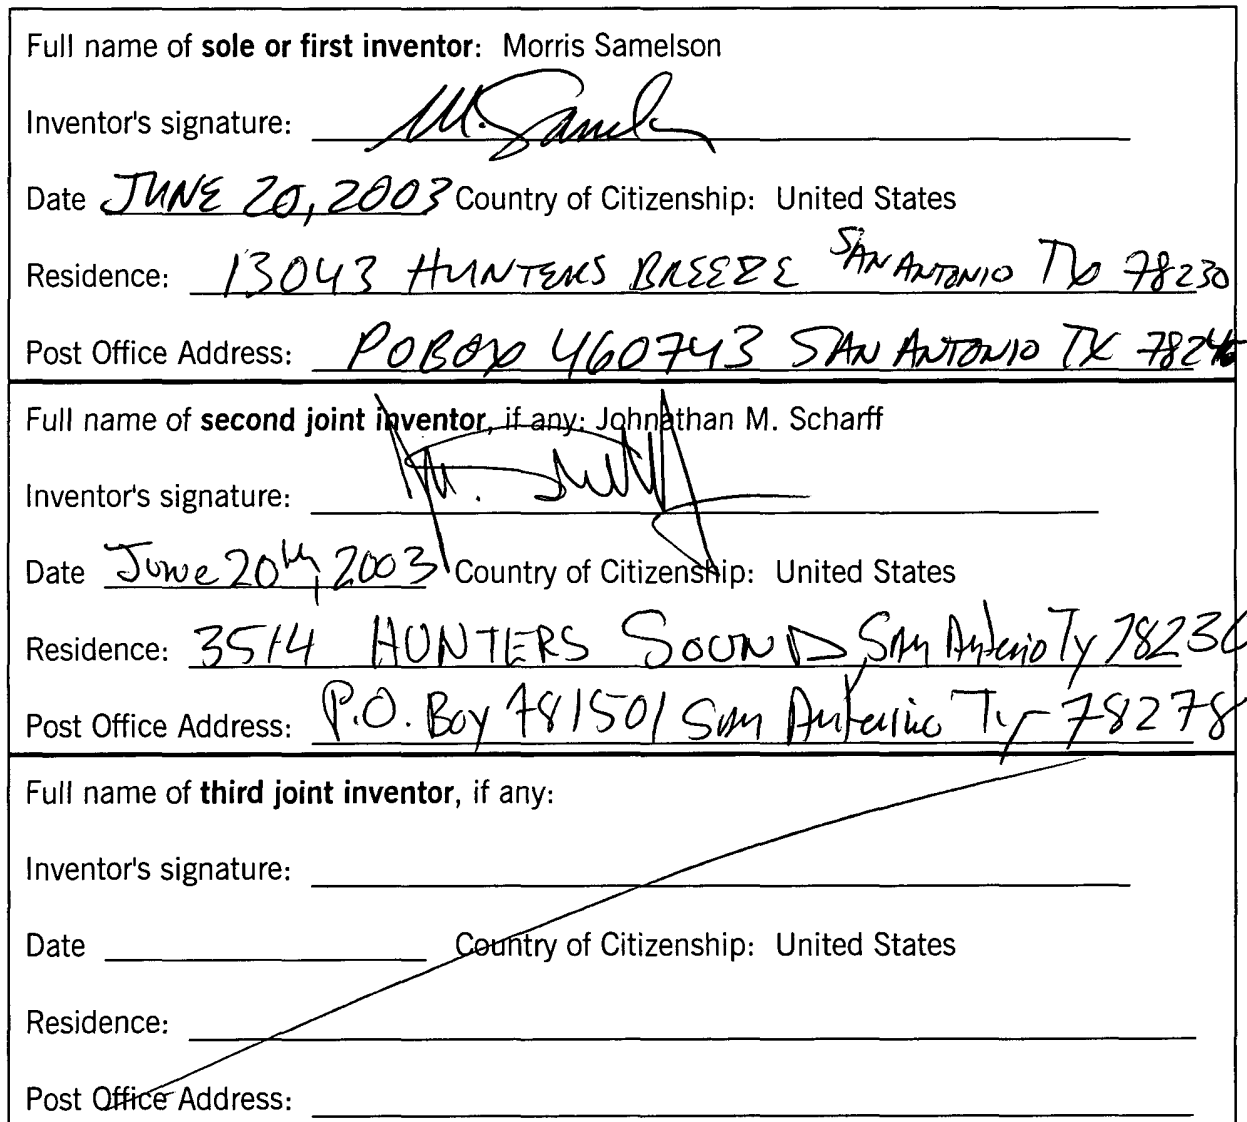 Full name of sole or first inventor: Morris Samelson
Inventor's signature: M. Samelson
Date JUNE 20, 2003 Country of Citizenship: United States
Residence: 13043 HUNTERS BREEZE SAN ANTONIO TX 78230
Post Office Address: PO BOX 460743 SAN ANTONIO TX
Full name of second joint inventor, if any: Johnathan M. Scharff
Inventor's signature:
Date June 20th, 2003 Country of Citizenship: United States
Residence: 3514 HUNTERS SOUND, San Antonio Tx 78230
Post Office Address: P.O. Box 781501 San Antonio Tx 78278
Full name of third joint inventor, if any:
Inventor's signature:
Date Country of Citizenship: United States
Residence:
Post Office Address: